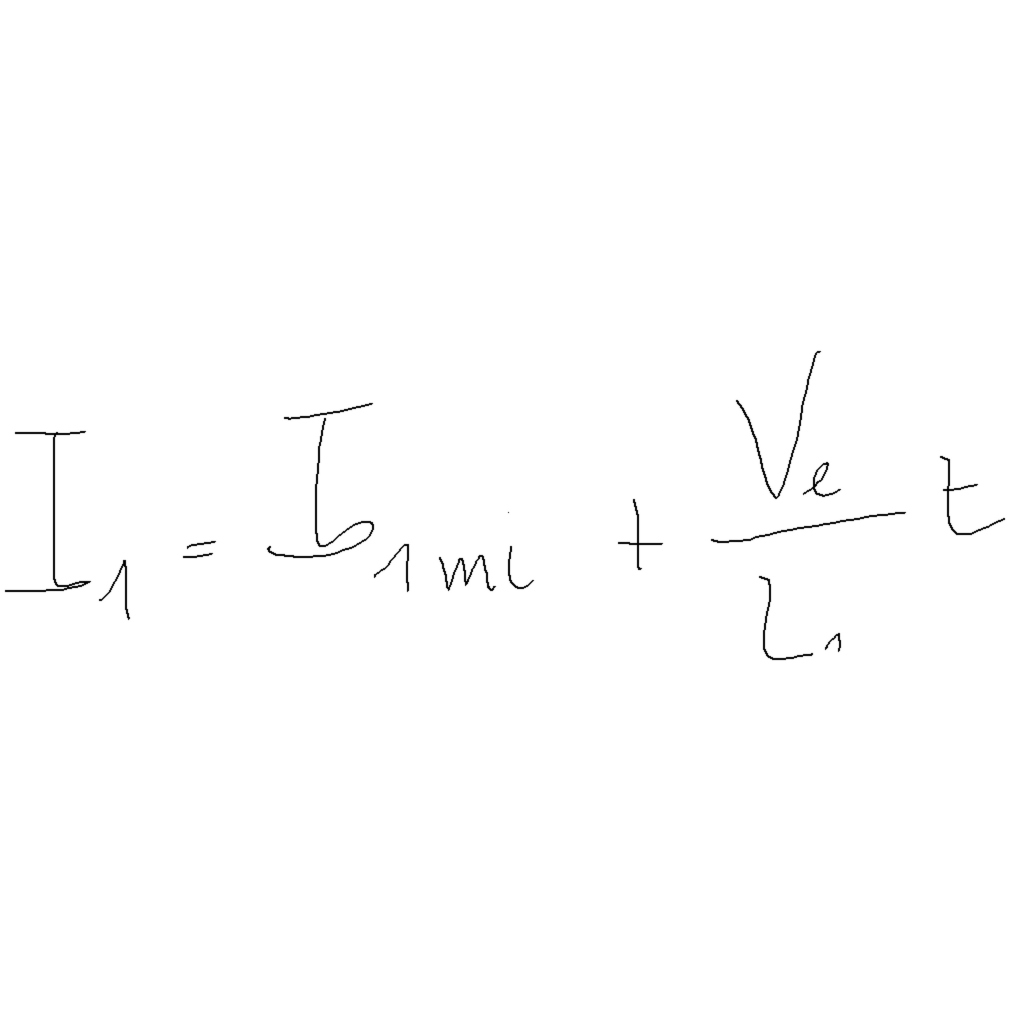 I_1 = I_{1mi} + \frac{V_e}{L_1} t